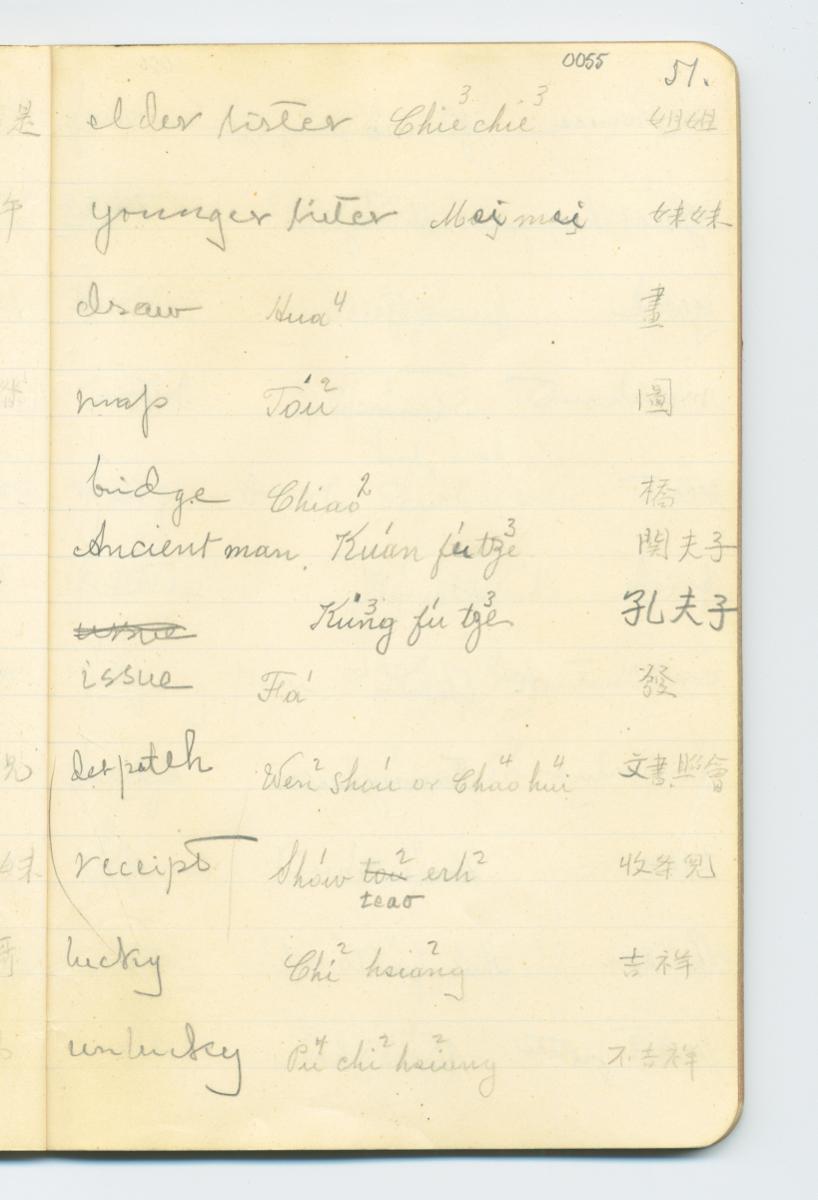 0055 51.
elder sister Chie³ chie³ 姐姐
younger sister Mei mei 妹妹
draw Hua⁴ 畫
map Tóu² 圖
bridge Chiao² 橋
Ancient man. Kuán fú tze³ 関夫子
Kung³ fú tze³ 孔夫子
issue Fa¹ 發
despatch Wen² shou¹ or Chao⁴ hui⁴ 文書 照會
receipt Show¹ tou² erh² 收条兒
teao
lucky Chi² hsiang² 吉祥
unlucky Pu⁴ chi² hsiang² 不吉祥
是
午
兄
妹
哥